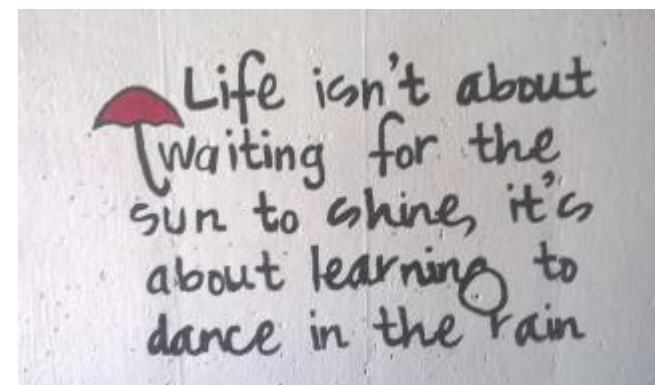 Life isn't about
waiting for the
sun to shine, it's
about learning to
dance in the rain